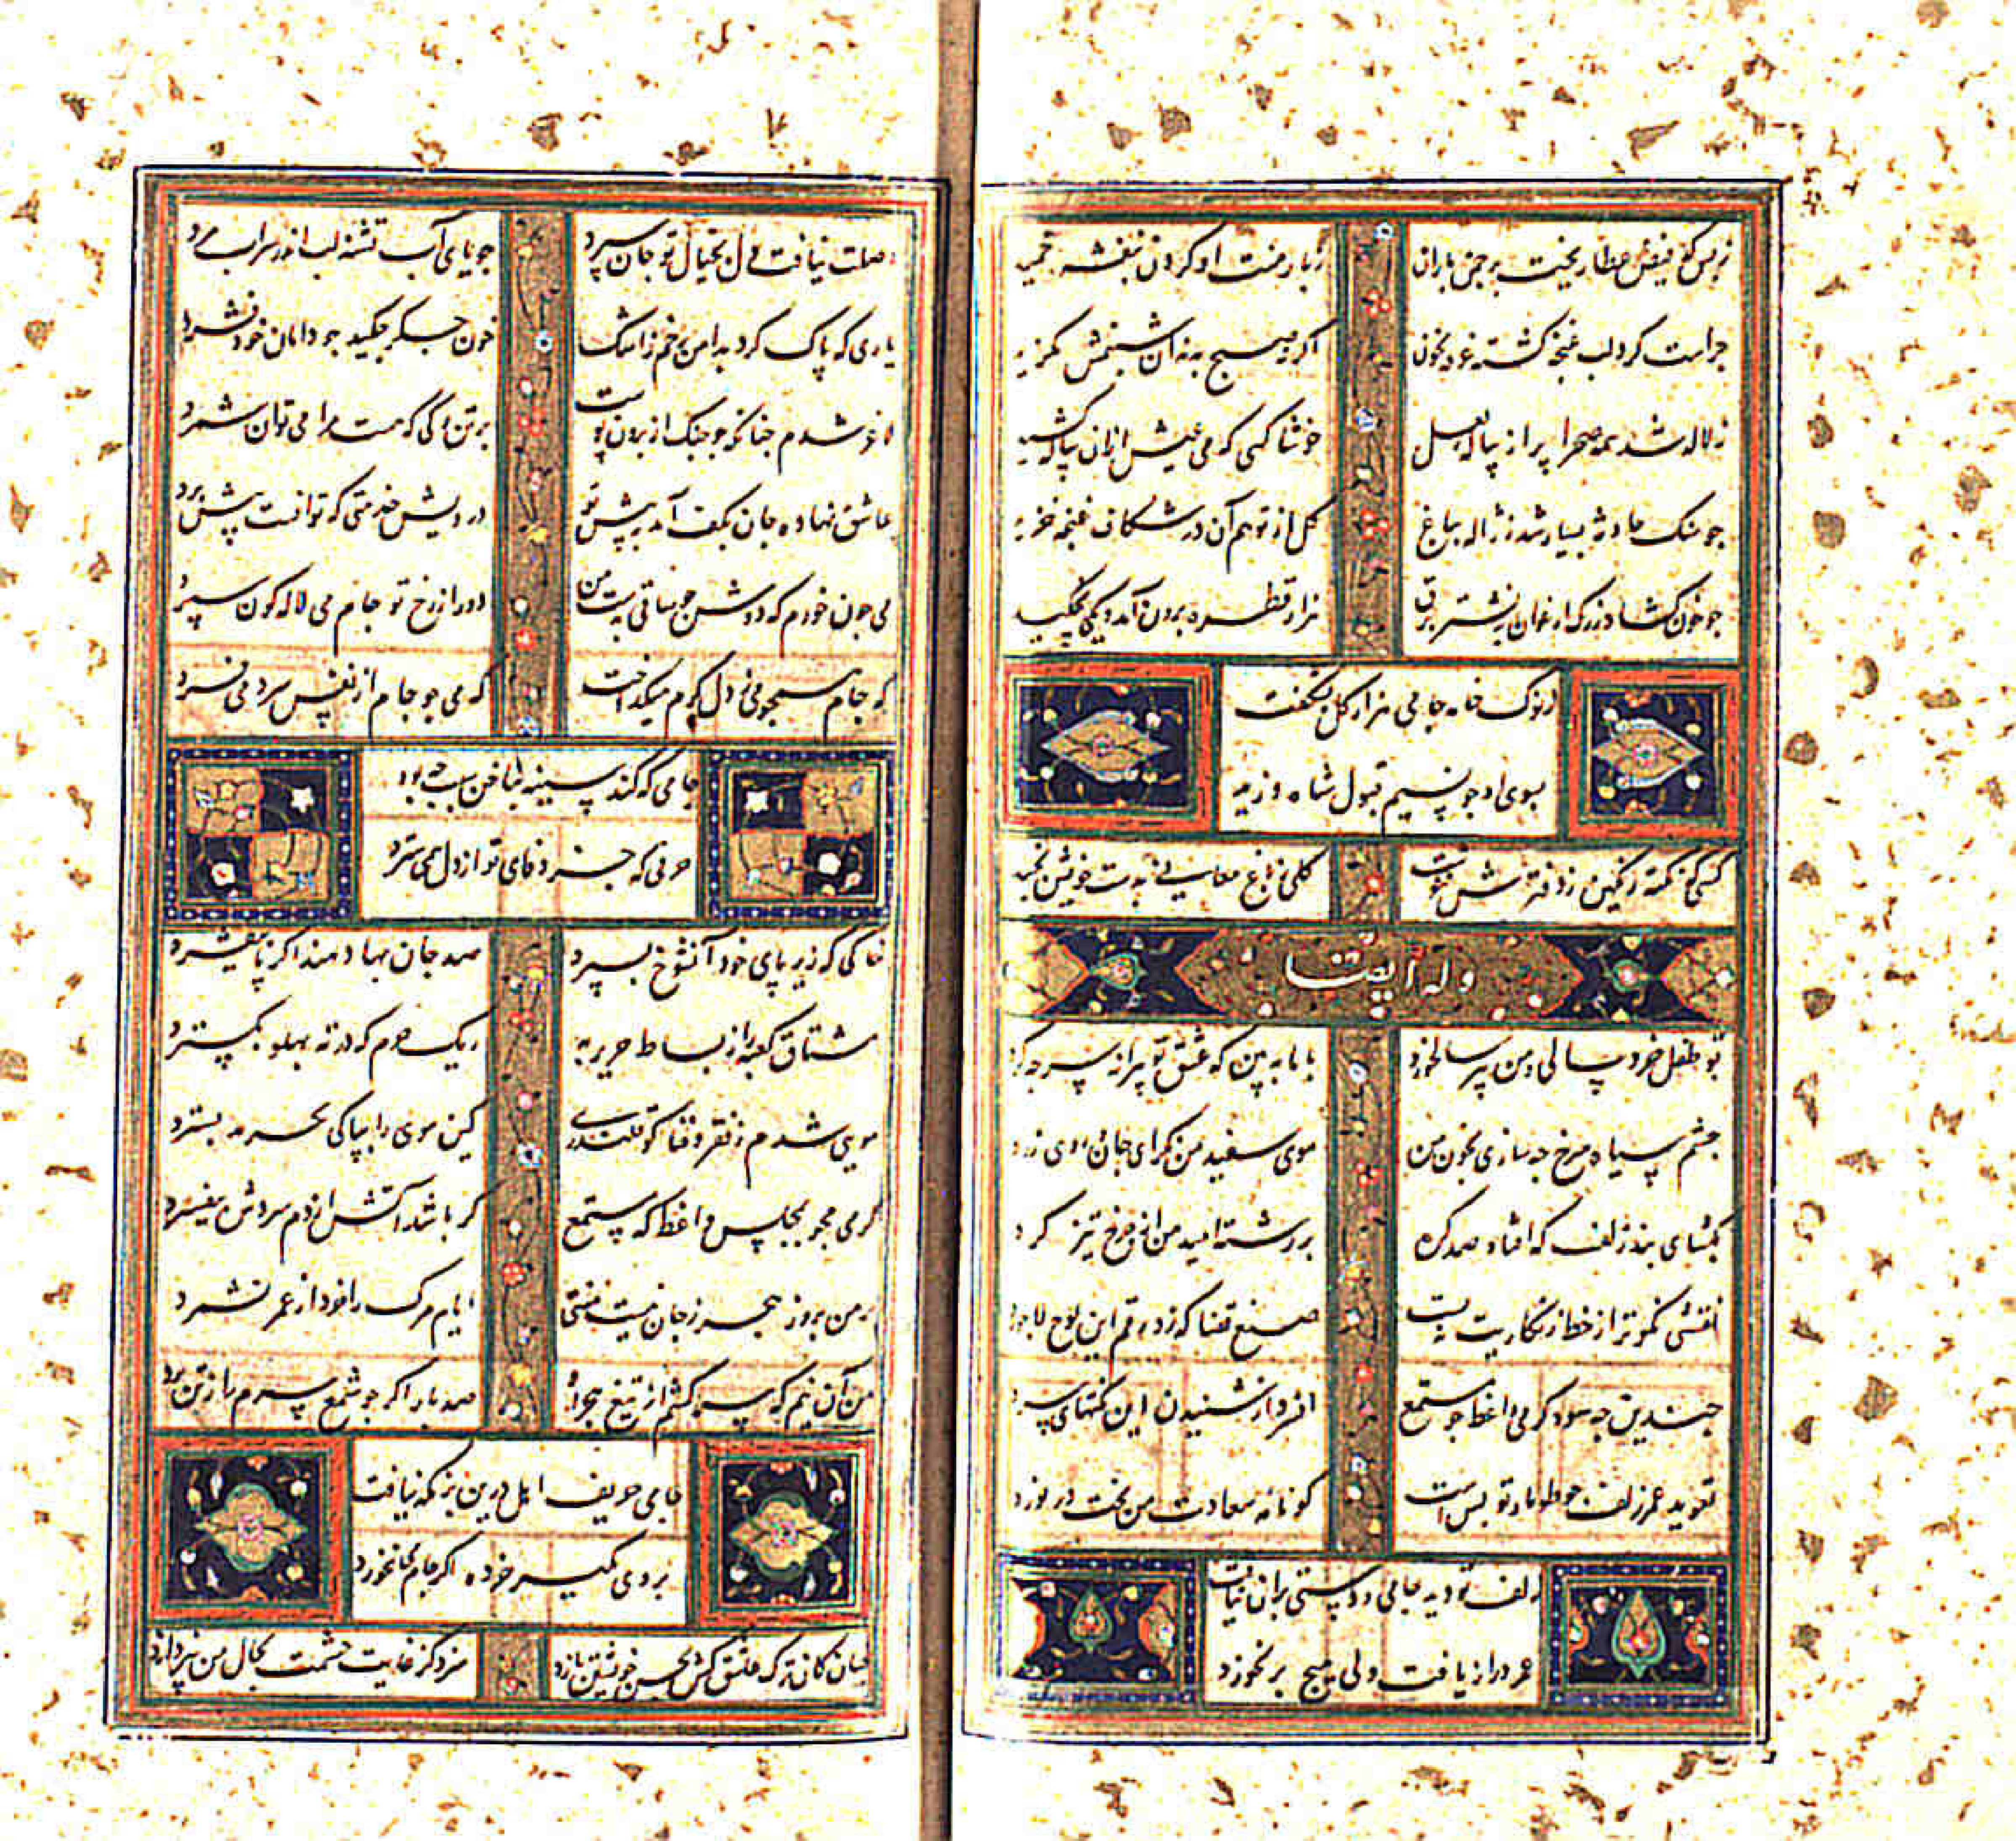 ز بس که فیض عطا ریخت بر چمن باران
ز بار منت او گردن بنفشه خمید
جراست کرد لب غنچه گشته غرقه بخون
اگر مسیح نه دندان شبنمش
ز لاله شد همه صحرا پر از پیاله لعل
خوشا کسی که می عیش ازان پیاله کشید
جو سنک حادثه بسیار شد ز ژاله بباغ
کل از توهم آن در شکاف غنچه خزید
جو خون کشاد ز رک ارغوان به نشتر برق
هزار قطره برون آمد و یکی نچکید
ز نوک خامه جامی هزار کل بشکفت
ببوی او جو نسیم قبول شاه وزید
کسی که نکته رنکین ز دفترش
کلی ز باغ معانی بدست خویش نچید
وله ایضا
تو طفل خرد سالی و من پیر سالخورد
با ما ببین که عشق تو پیرانه سر جه کرد
جشم سیاه سرخ جه سازی بخون من
موی سفید من نکر ای جان و روی زرد
بکشای بند زلف که افتاد صد کره
بر رشته امید من از جرخ تیز کرد
نقشی نکوتر از خط زنکاریت نبست
صنع قضا که زد رقم این لوح لاجورد
جندین جه سود کرمی واعظ جو مستمع
افسرد از شنیدن این نکتهای سرد
تعوید عمر زلف جو طومار تو بس است
کو نامه سعادت من بخت در نورد
زلف تو دید جامی و دستی بران نیافت
عمر دراز یافت ولی هیج بر نخورد
وصلت نیافت دل بخیال تو جان سپرد
جویای آب تشنه لب اندر سراب مرد
یاری که پاک کرد بدامن رخم ز اشک
خون جکر جکید جو دامان خود فشرد
لاغر شدم جنانکه جو جنک از برون پوست
بر تن رکی که هست مرا می توان شمرد
عاشق نهاده جان بکف آمد به پیش تو
درویش خدمتی که توانست پیش برد
می جون خورم که دوش جو ساقی بدست من
دور از رخ تو جام می لاله کون سپرد
که جام همجو می ز دل کرم میکداخت
که می جو جام از نفس سرد می فسرد
جامی که کند سینه بناخن سبب جه بود
حرفی که جز وفای تو از دل همی سترد
خاکی که زیر پای خود آنشوخ بسپرد
صد جان بها دهند اکر با
مشتاق کعبه را ز بساط حریر به
ریک حرم که در ته پهلو بکسترد
مویی شدم ز فقر و فنا کو قلندری
کین موی را بپاکی بسترد
کرمی مجو بمجلس واعظ که مستمع
کر باشد آتش از دم سردش بیفسرد
بر من بروز هجر ز جان نیست منتی
ایام مرک را خود از عمر نشمرد
من آن نیم که سر کشم از تیغ هجر او
صد بار اکر جو شمع سرم را ز تن برد
جامی حریف اهل درین بزمکه نیافت
بر وی مکیر خرده اکر جام می نخورد
جنان کان ترک عاشق کش بحسن خویشتن نازد
سزد کز غایت حشمت بحال من نپردازد